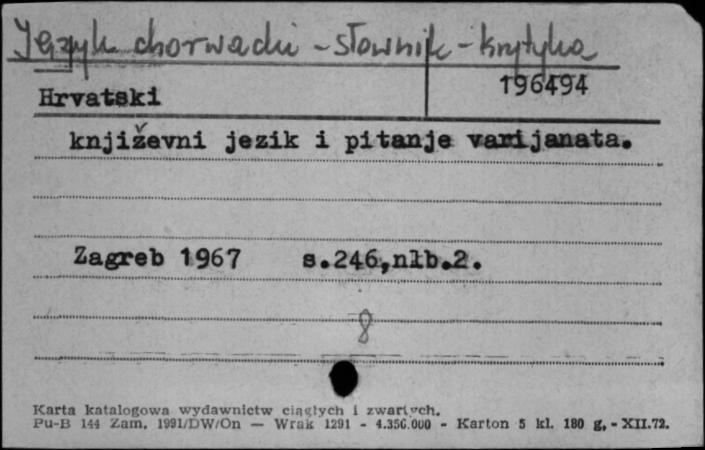 Język chorwacki - słownik - krytyka
196494
Hrvatski
književni jezik i pitanje varijanata.
Zagreb 1967 s.246,nlb.2.
8
Karta katalogowa wydawnictw ciągłych i zwartych.
Pu-B 144 Zam. 1991/DW/On — Wrak 1291 - 4.356.000 - Karton 5 kl. 180 g. - XII.72.